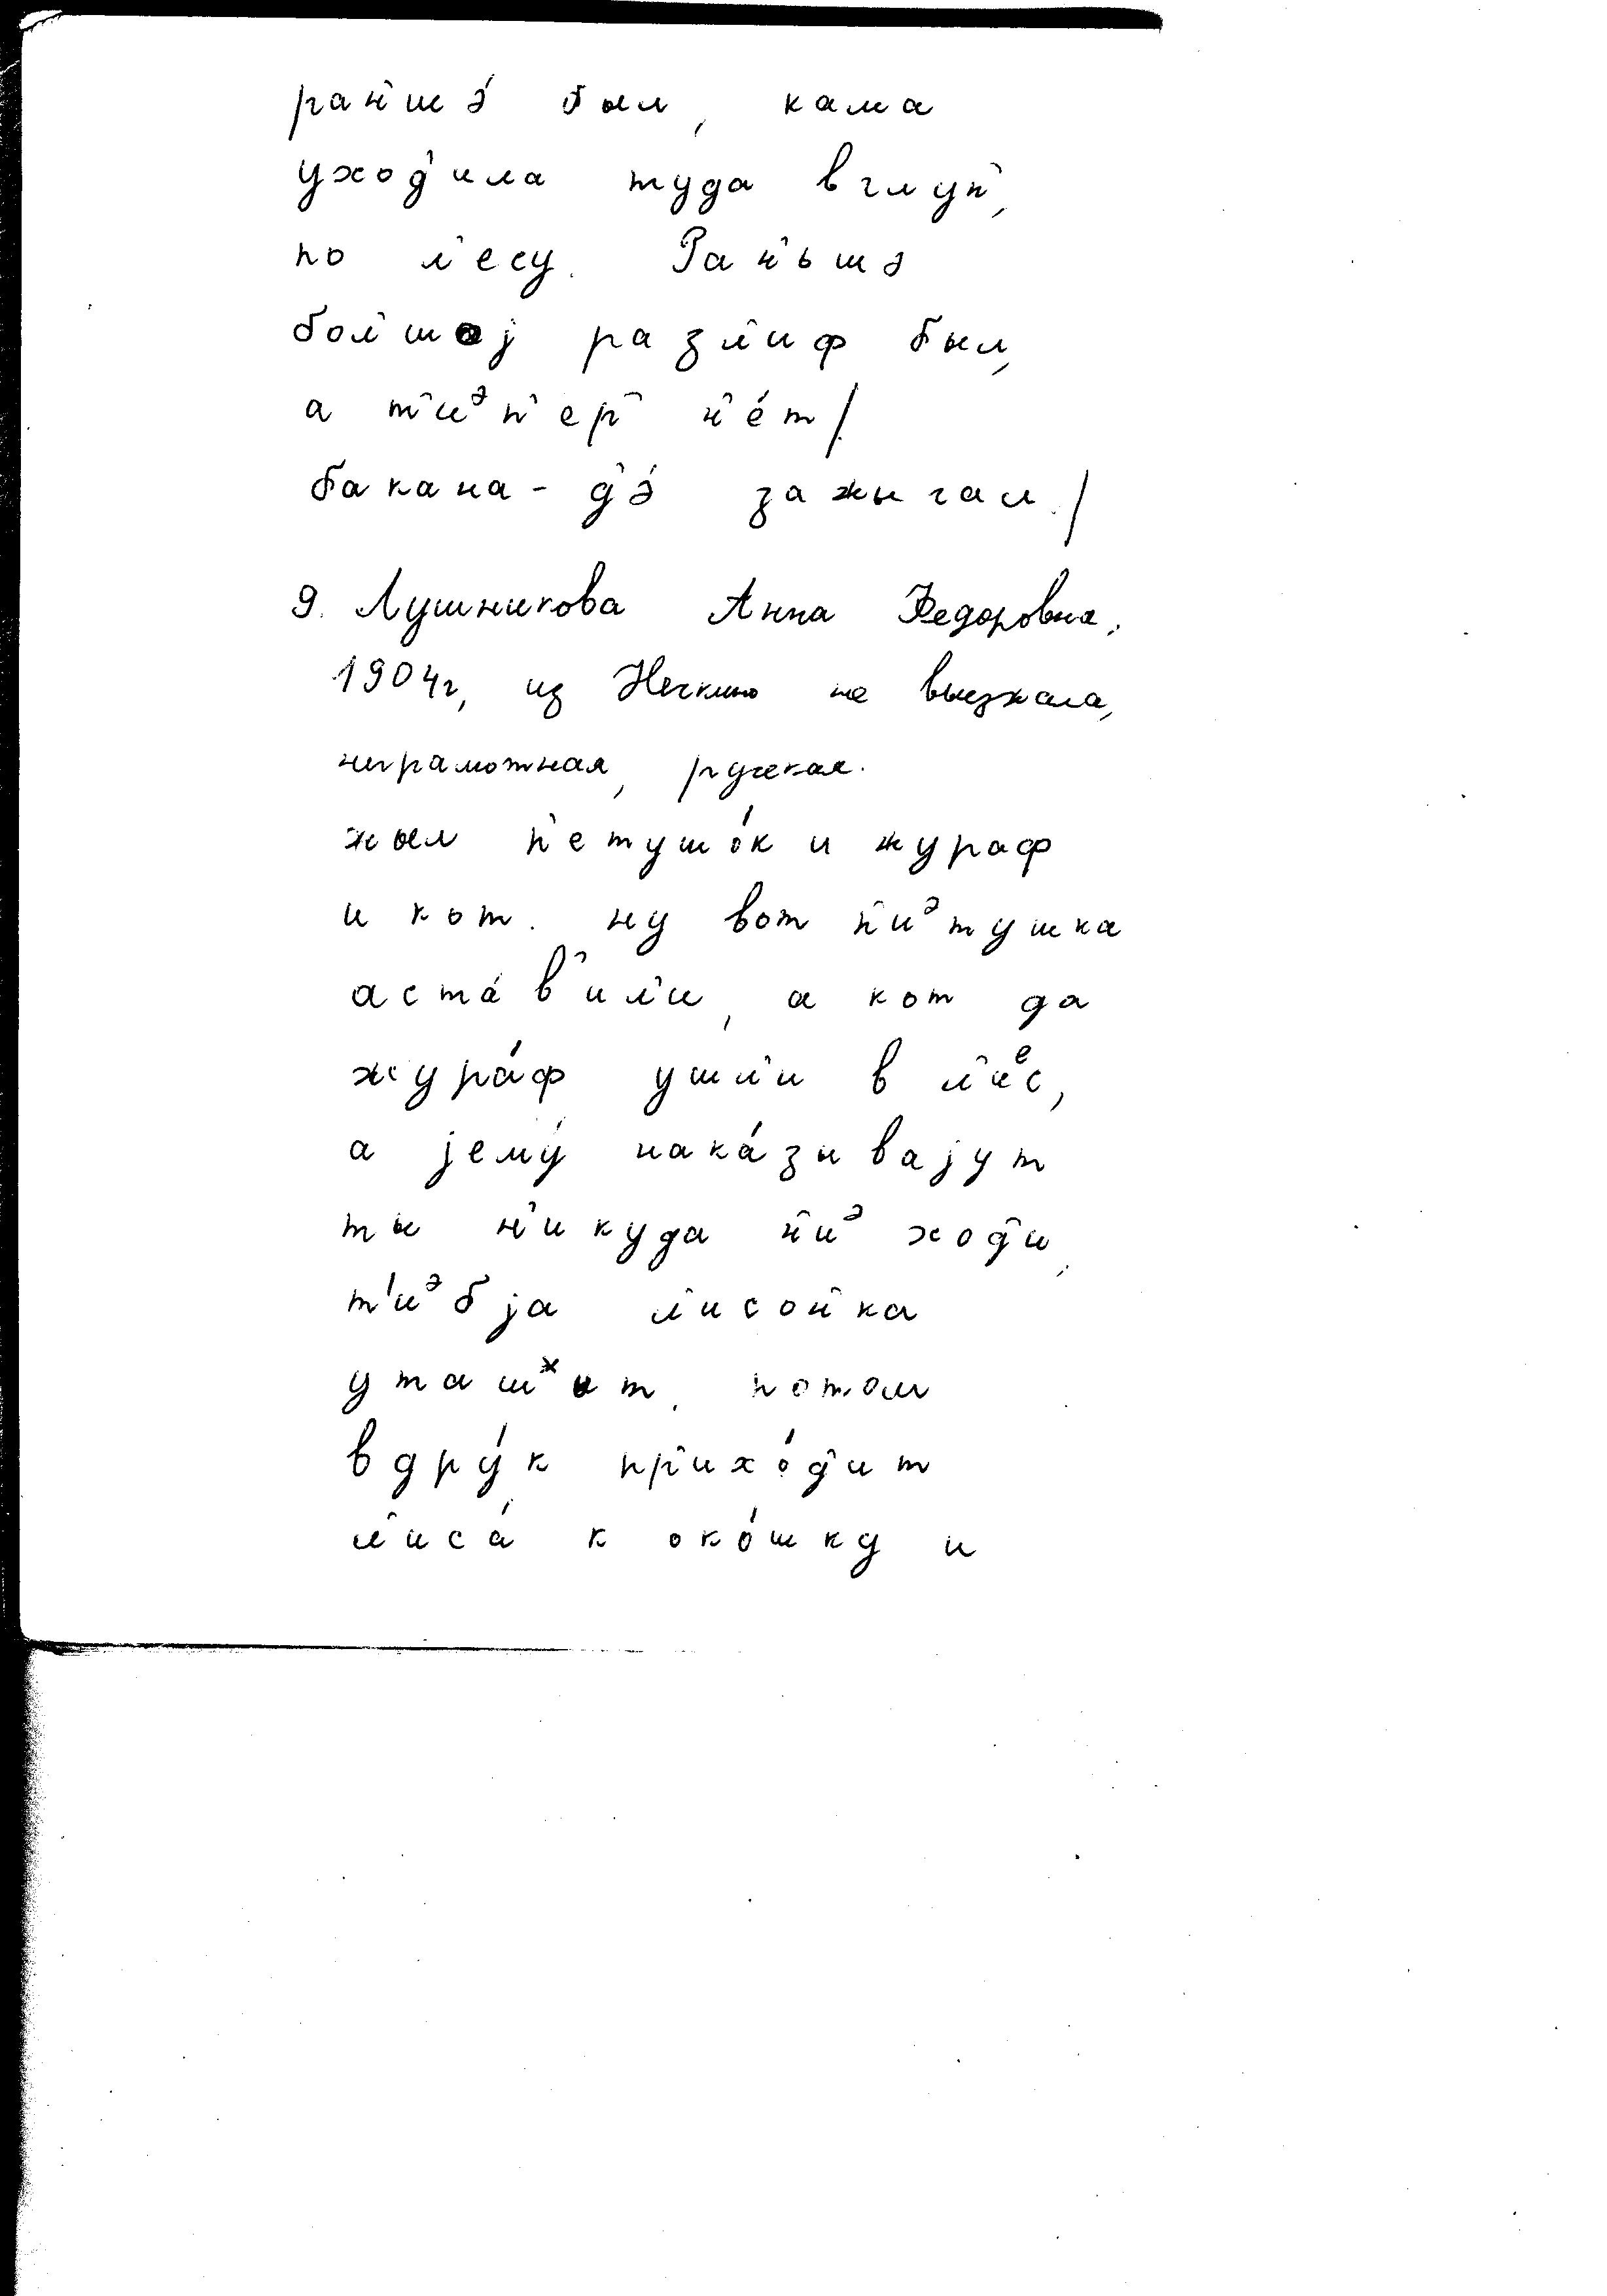 ран̂шэ́ был, кама
уход̂ила туда вглуп̂,
по л̂есу. Ран̂ьшэ
бол̂шој разл̂иф был,
а т̂иᵊп̂ер̂ н̂е́т/.
бакана - д̂э́ зажыгал./
9. Лушникова Анна Федоровна,
1904г, из Нечкино не выезжала,
неграмотная, русская.
жыл п̂етушо́к и жураф
и кот. ну вот п̂иᵊтушка
аста́в̂ил̂и, а кот да
жура́ф ушл̂и в л̂иᵉс,
а јему́ нака́зывајут
ты н̂икуда н̂иᵊ ход̂и,
т̂иᵊбја л̂исон̂ка
уташˣыт. потом
вдру́к пр̂ихо́д̂ит
л̂иса́ к око́шку и